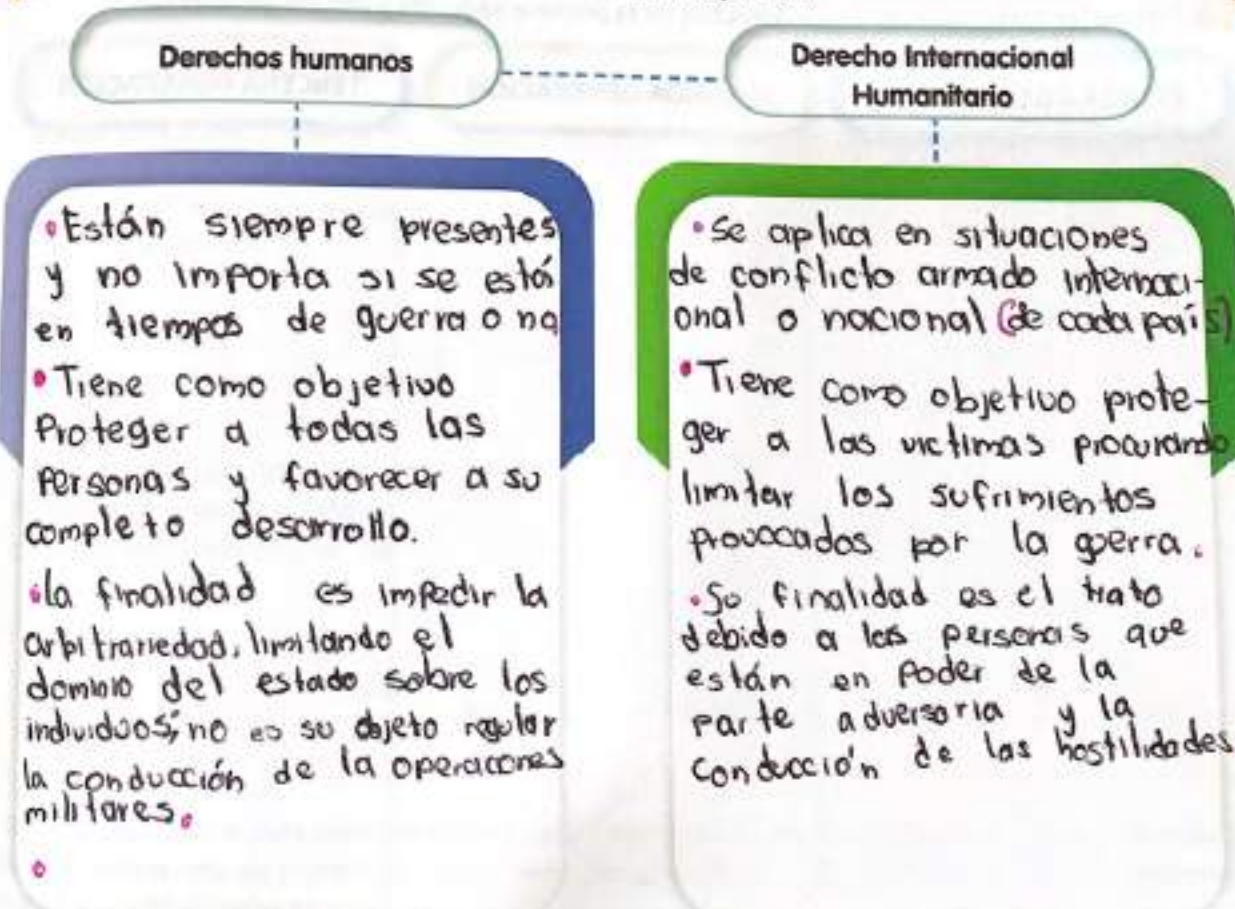 Derechos humanos
•Están siempre presentes
y no importa si se está
en tiempos de guerra o no
•Tiene como objetivo
Proteger a todas las
Personas y favorecer a su
completo desarrollo.
•la finalidad es impedir la
arbitrariedad, limitando el
dominio del estado sobre los
individuos; no es su objeto regular
la conducción de la operaciones
militares.
Derecho Internacional
Humanitario
•Se aplica en situaciones
de conflicto armado internaci-
onal o nacional (de cada país)
•Tiene como objetivo prote-
ger a las victimas procurando
limitar los sufrimientos
provocados por la gerra.
•Su finalidad es el trato
debido a las personas que
están en Poder de la
parte adversaria y la
conducción de las hostilidades